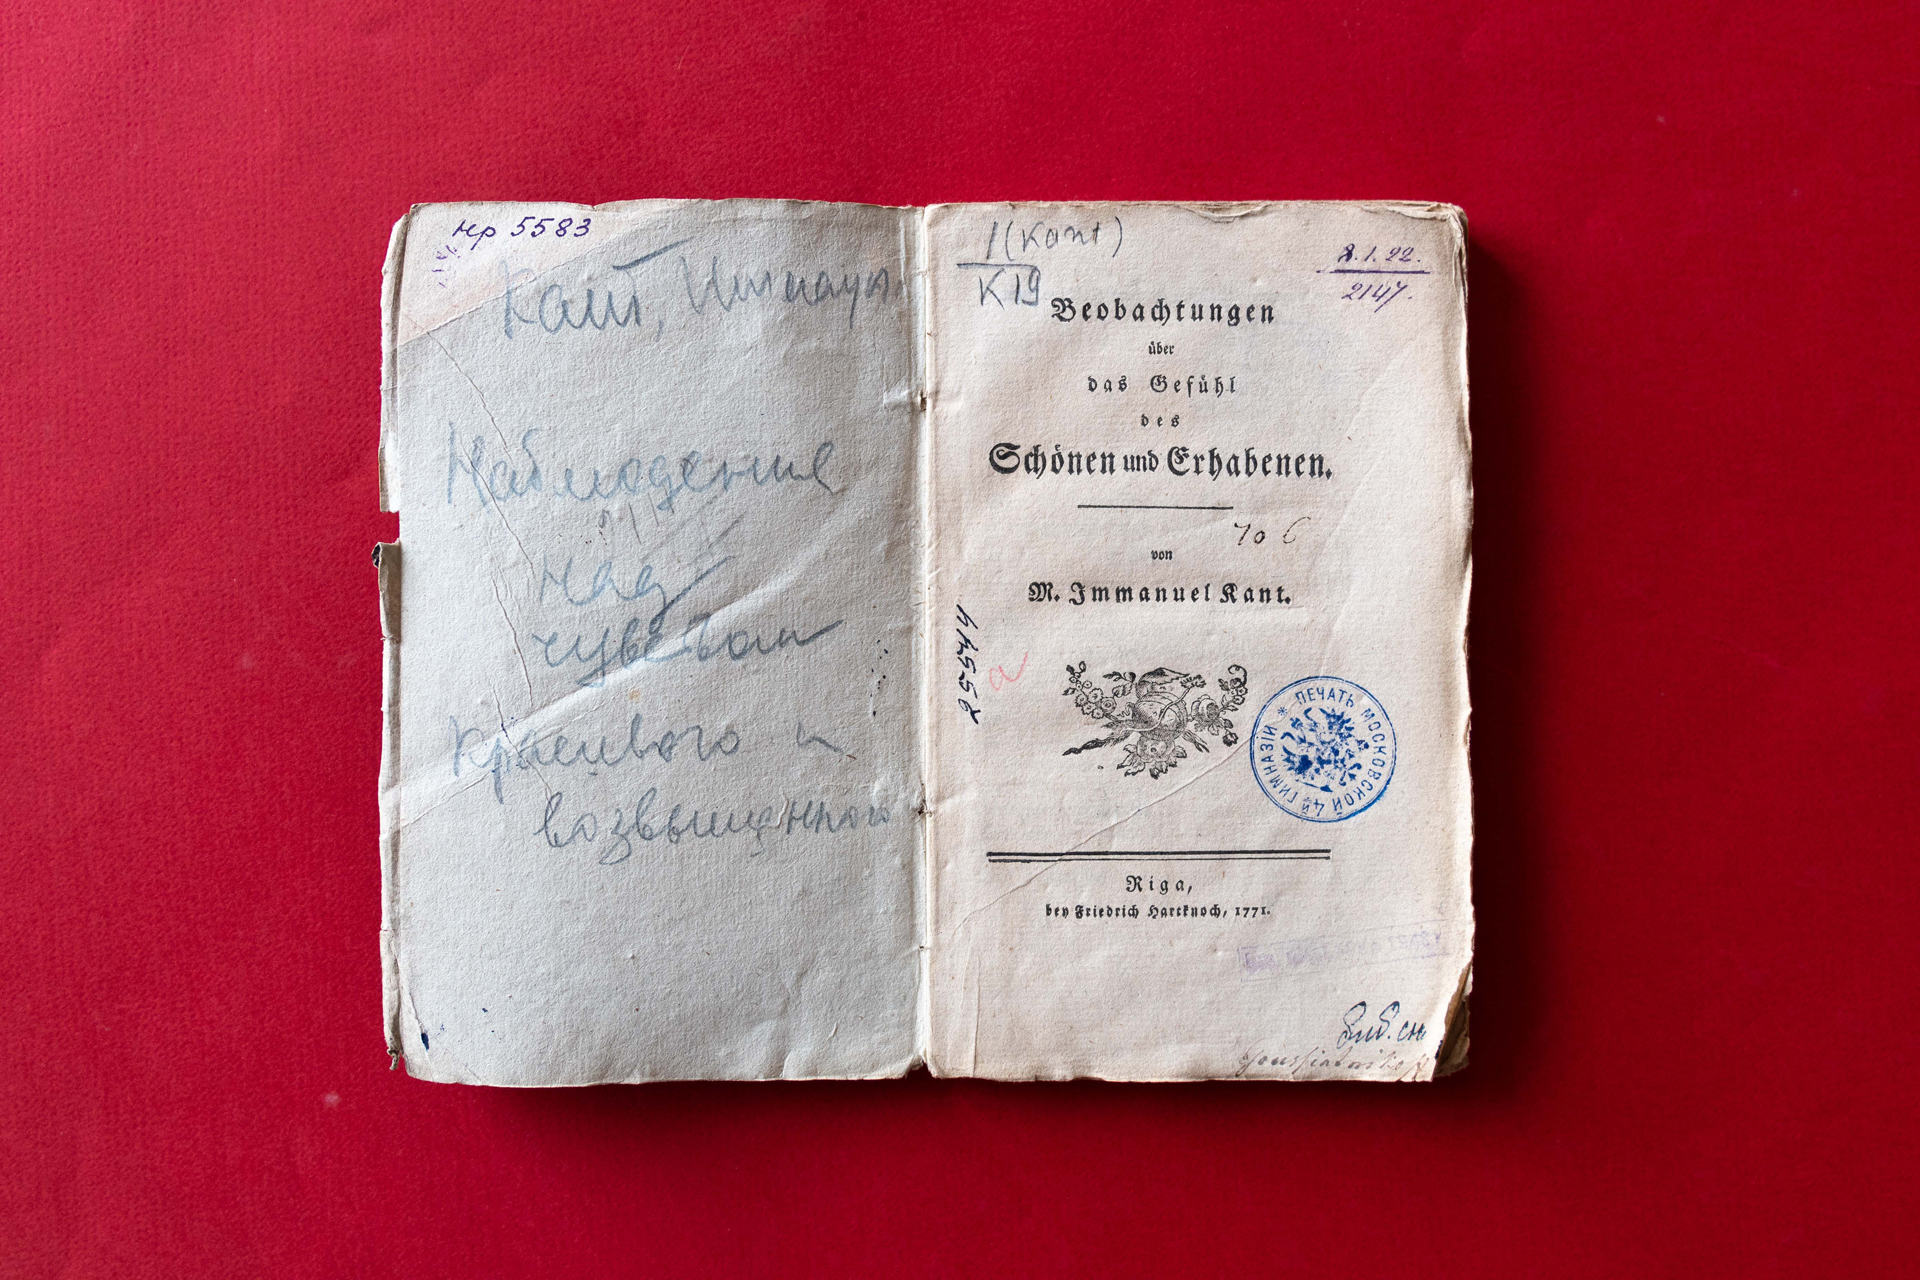 нр 5583
Кант, Иммануил.
Наблюдения
над
чувством
красивого и
возвышенного
1(Kant)
K19
2.1.22.
2147.
Beobachtungen
über
das Gefühl
des
Schönen und Erhabenen.
von
M. Immanuel Kant.
25544
a
* ПЕЧАТЬ МОСКОВСКОЙ 4Й ГИМНАЗІИ
Riga,
bey Friedrich Hartknoch, 1771.